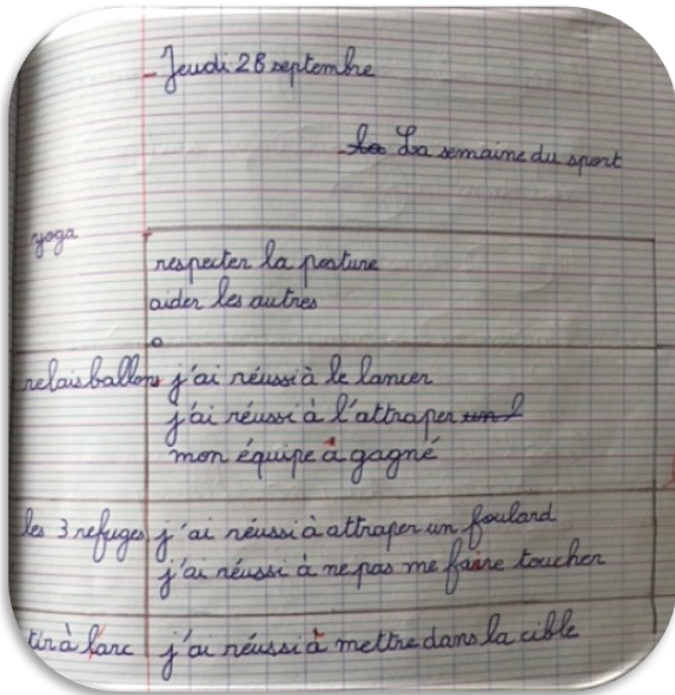 Jeudi 28 septembre
La semaine du sport
yoga
respecter la posture
aider les autres
relais ballons j'ai réussi à le lancer
j'ai réussi à l'attraper
mon équipe à gagné
les 3 refuges j'ai réussi à attraper un foulard
j'ai réussi à ne pas me faire toucher
tir à l'arc j'ai réussi à mettre dans la cible